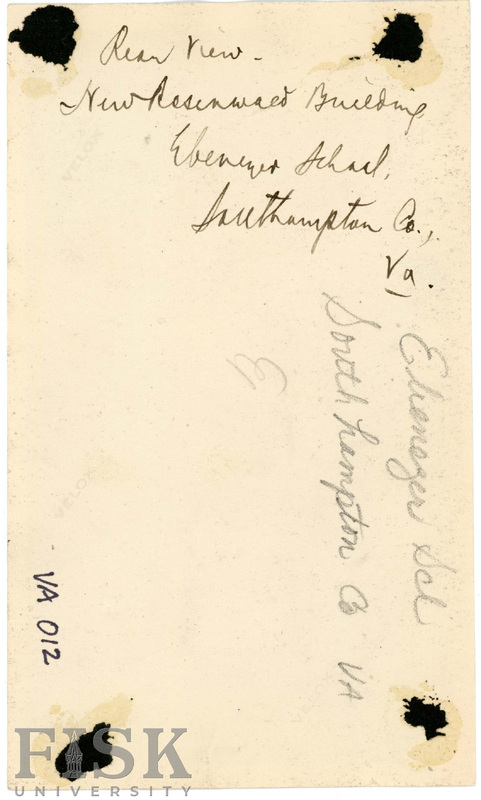 Rear View.
New Rosenwald Building
Ebenezer School,
Southampton Co.,
Va.
Ebenezer Scl
Southhampton Co VA
VELOX
VELOX
VA 012
FISK
UNIVERSITY